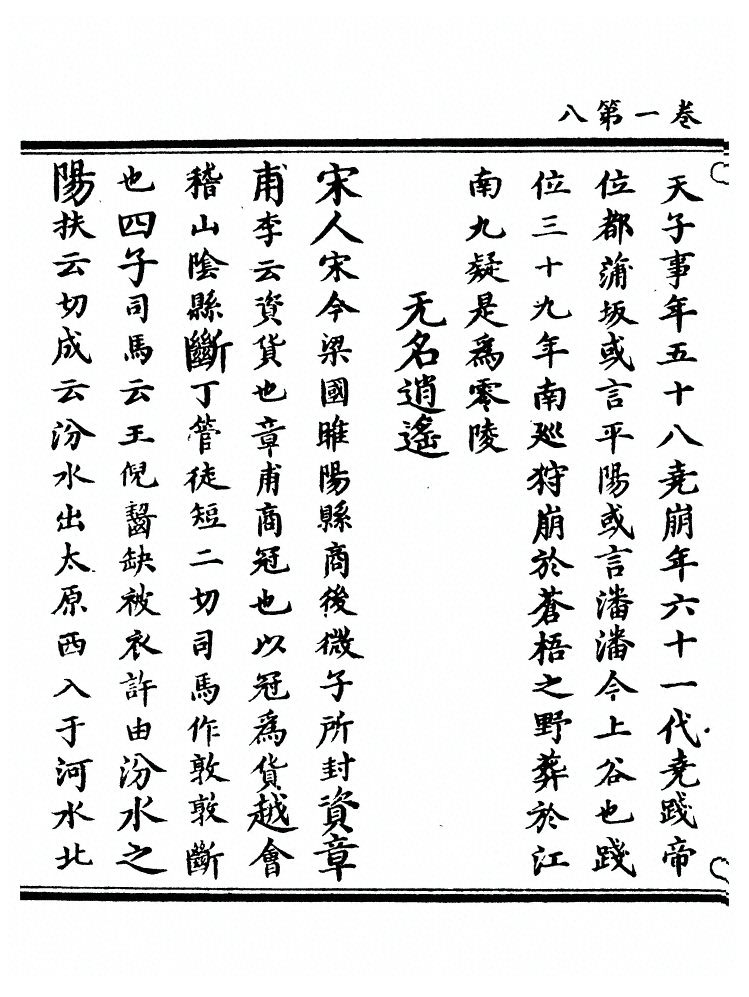 卷一第八
天子事年五十八堯崩年六十一代堯踐帝
位都蒲坂或言平陽或言潘潘今上谷也踐
位三十九年南廵狩崩於蒼梧之野葬於江
南九疑是爲零陵
无名逍遙
宋人宋今梁國睢陽縣商後微子所封資章
甫李云資貨也章甫商冠也以冠爲貨越會
稽山陰縣斷丁管徒短二切司馬作敦敦斷
也四子司馬云王倪齧缺被衣許由汾水之
陽扶云切成云汾水出太原西入于河水北